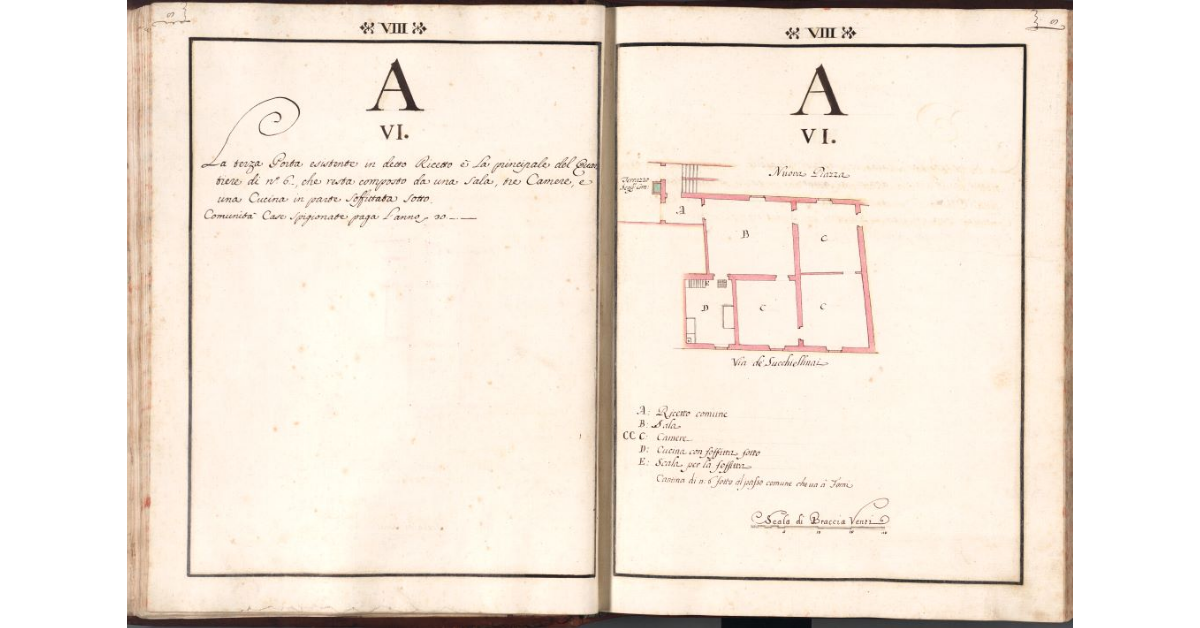 VIII
A
VI.
La terza Porta esistente in detto Ricetto è La principale del Quar
tiere di n.º 6., che resta composto da una Sala, tre Camere, e
una Cucina in parte soffittata sotto.
Comunità Case spigionate paga l'anno
VIII
A
VI.
Nuova Piazza
Terrazzo
A
B
C
D
C
C
Via de' Succhiellinai
A: Ricetto comune
B: Sala
CC C: Camere
D: Cucina con soffitta sotto
E: Scala per la soffitta
di n. 6 sotto al passo comune che va a
Scala di Braccia Venti